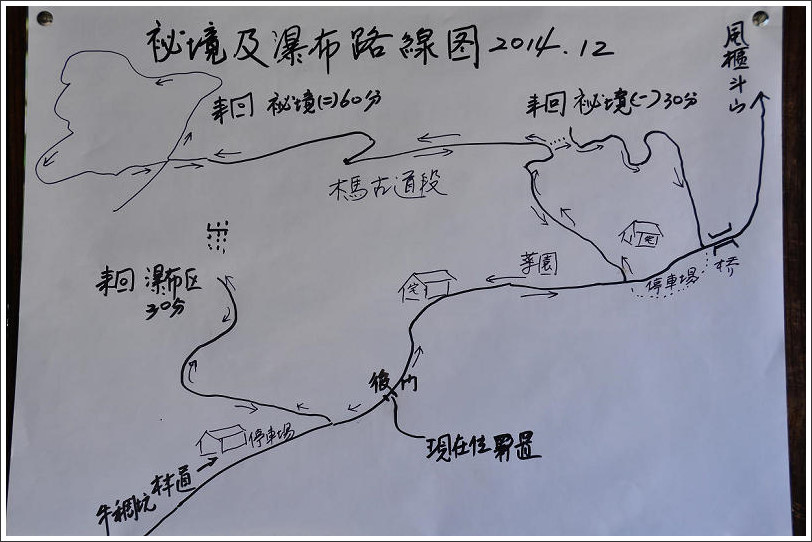 祕境及瀑布路線图 2014.12
風櫃斗山
來回 祕境(二)60分
來回 祕境(一)30分
木馬古道段
宅
來回 瀑布区
30分
菜園
宅
停車場
桥
後门
現在位置
停車場
牛稠坑林道